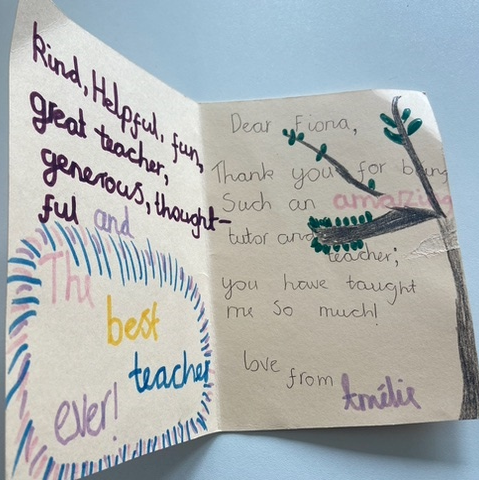 Kind, Helpful, fun,
great teacher,
generous, thought-
ful and
The
best
teacher
ever!
Dear Fiona,
Thank you for being
Such an amazing
tutor and
teacher;
you have taught
me so much!
love
from Amélie